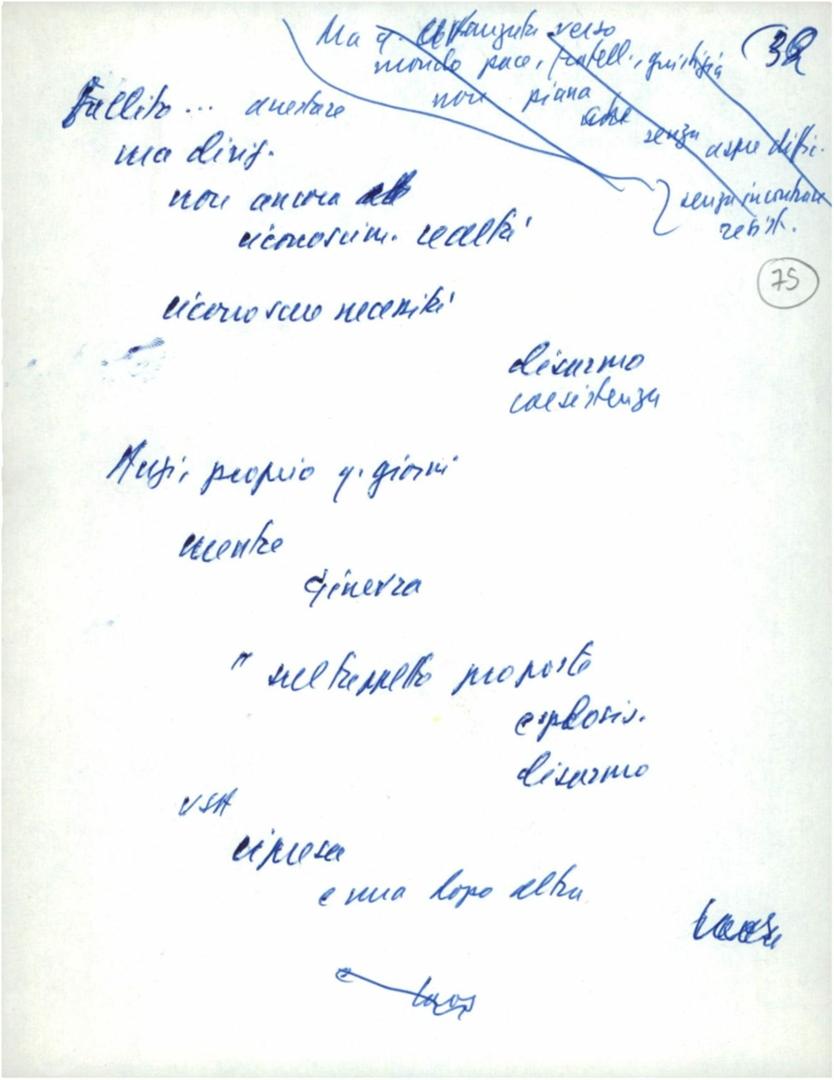 Ma q. avanzata verso
mondo pace, fratell., giustizia
non piana
senza aspre diffic.
senza incontrare
resist.
32
Fallito... arrestare
ma dirig.
non ancora
riconoscim. realtà
75
riconoscere necessità
disarmo
coesistenza
Anzi, proprio q. giorni
mentre
Ginevra
" sul tappeto proposte
esplosio.
disarmo
USA
ripresa
e una dopo altra
e Laos